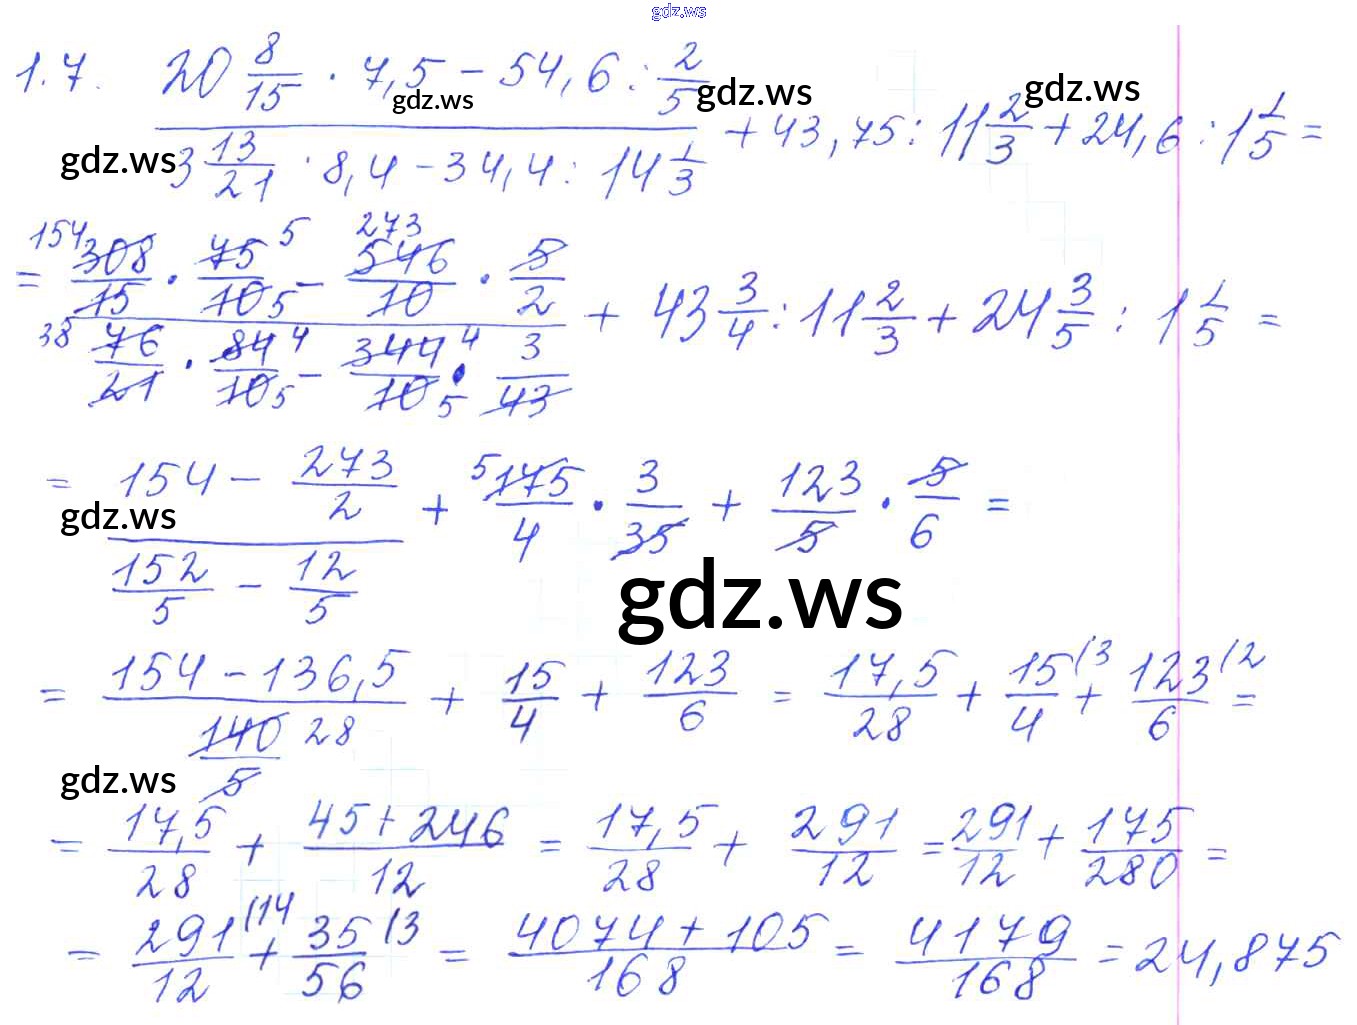 gdz.ws
1.7. (20 8/15 · 7,5 − 54,6 : 2/5) / (3 13/21 · 8,4 − 34,4 : 14 1/3) + 43,75 : 11 2/3 + 24,6 : 1 1/5 =
gdz.ws gdz.ws gdz.ws
gdz.ws
154 5 273
= (308/15 · 75/10 5 − 546/10 · 5/2) / (38 76/21 · 84 4/10 5 − 344 4/10 5 · 3/43) + 43 3/4 : 11 2/3 + 24 3/5 : 1 1/5 =
= (154 − 273/2) / (152/5 − 12/5) + 5 175/4 · 3/35 + 123/5 · 5/6 =
gdz.ws
gdz.ws
= (154 − 136,5) / (140/5 28) + 15/4 + 123/6 = 17,5/28 + 15/4 (3 + 123/6 (2 =
gdz.ws
= 17,5/28 + (45 + 246)/12 = 17,5/28 + 291/12 = 291/12 + 175/280 =
= 291/12 (14 + 35/56 (3 = (4074 + 105)/168 = 4179/168 = 24,875